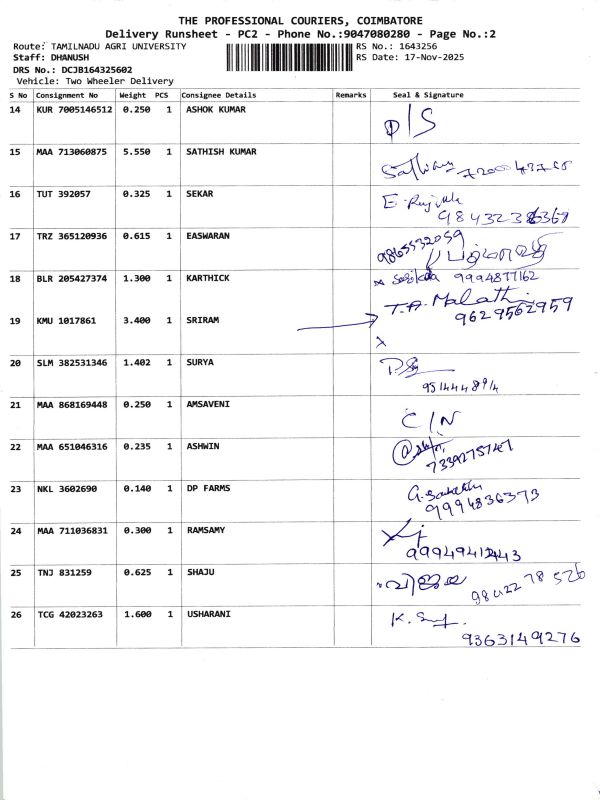 THE PROFESSIONAL COURIERS, COIMBATORE
Delivery Runsheet - PC2 - Phone No.:9047080280 - Page No.:2
Route: TAMILNADU AGRI UNIVERSITY RS No.: 1643256
Staff: DHANUSH RS Date: 17-Nov-2025
DRS No.: DCJB164325602
Vehicle: Two Wheeler Delivery
S No Consignment No Weight PCS Consignee Details Remarks Seal & Signature
14 KUR 7005146512 0.250 1 ASHOK KUMAR D/S
15 MAA 713060875 5.550 1 SATHISH KUMAR
16 TUT 392057 0.325 1 SEKAR
17 TRZ 365120936 0.615 1 EASWARAN 9865532059
18 BLR 205427374 1.300 1 KARTHICK 9994877162
T.A. Malathi
19 KMU 1017861 3.400 1 SRIRAM 9629562959
x
20 SLM 382531346 1.402 1 SURYA
21 MAA 868169448 0.250 1 AMSAVENI C/N
22 MAA 651046316 0.235 1 ASHWIN
7339275747
23 NKL 3602690 0.140 1 DP FARMS
9994836373
24 MAA 711036831 0.300 1 RAMSAMY
25 TNJ 831259 0.625 1 SHAJU
9842278526
26 TCG 42023263 1.600 1 USHARANI
9363149276